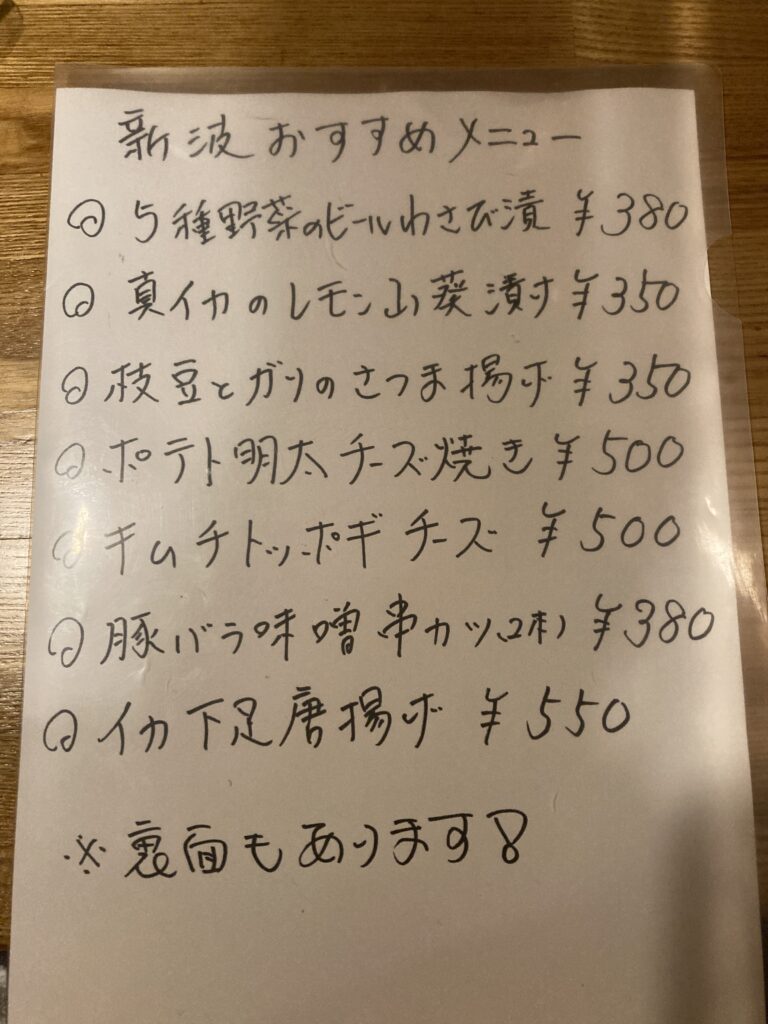 新波おすすめメニュー
◎ 5種野菜のビールわさび漬 ¥380
◎ 真イカのレモン山葵漬け ¥350
◎ 枝豆とガリのさつま揚げ ¥350
◎ ポテト明太チーズ焼き ¥500
◎ キムチトッポギチーズ ¥500
◎ 豚バラ味噌串カツ(2本) ¥380
◎ イカ下足唐揚げ ¥550
※裏面もあります!